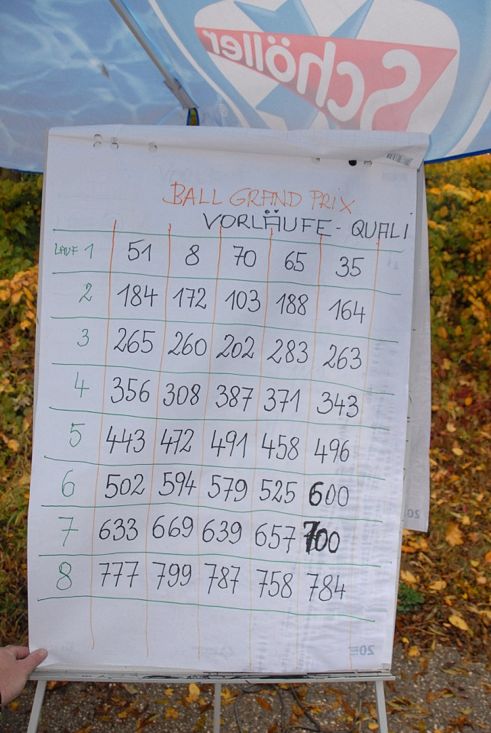 Schöller
BALL GRAND PRIX
VORLÄUFE - QUALI
LAUF 1 51 8 70 65 35
2 184 172 103 188 164
3 265 260 202 283 263
4 356 308 387 371 343
5 443 472 491 458 496
6 502 594 579 525 600
7 633 669 639 657 700
8 777 799 787 758 784
20
20